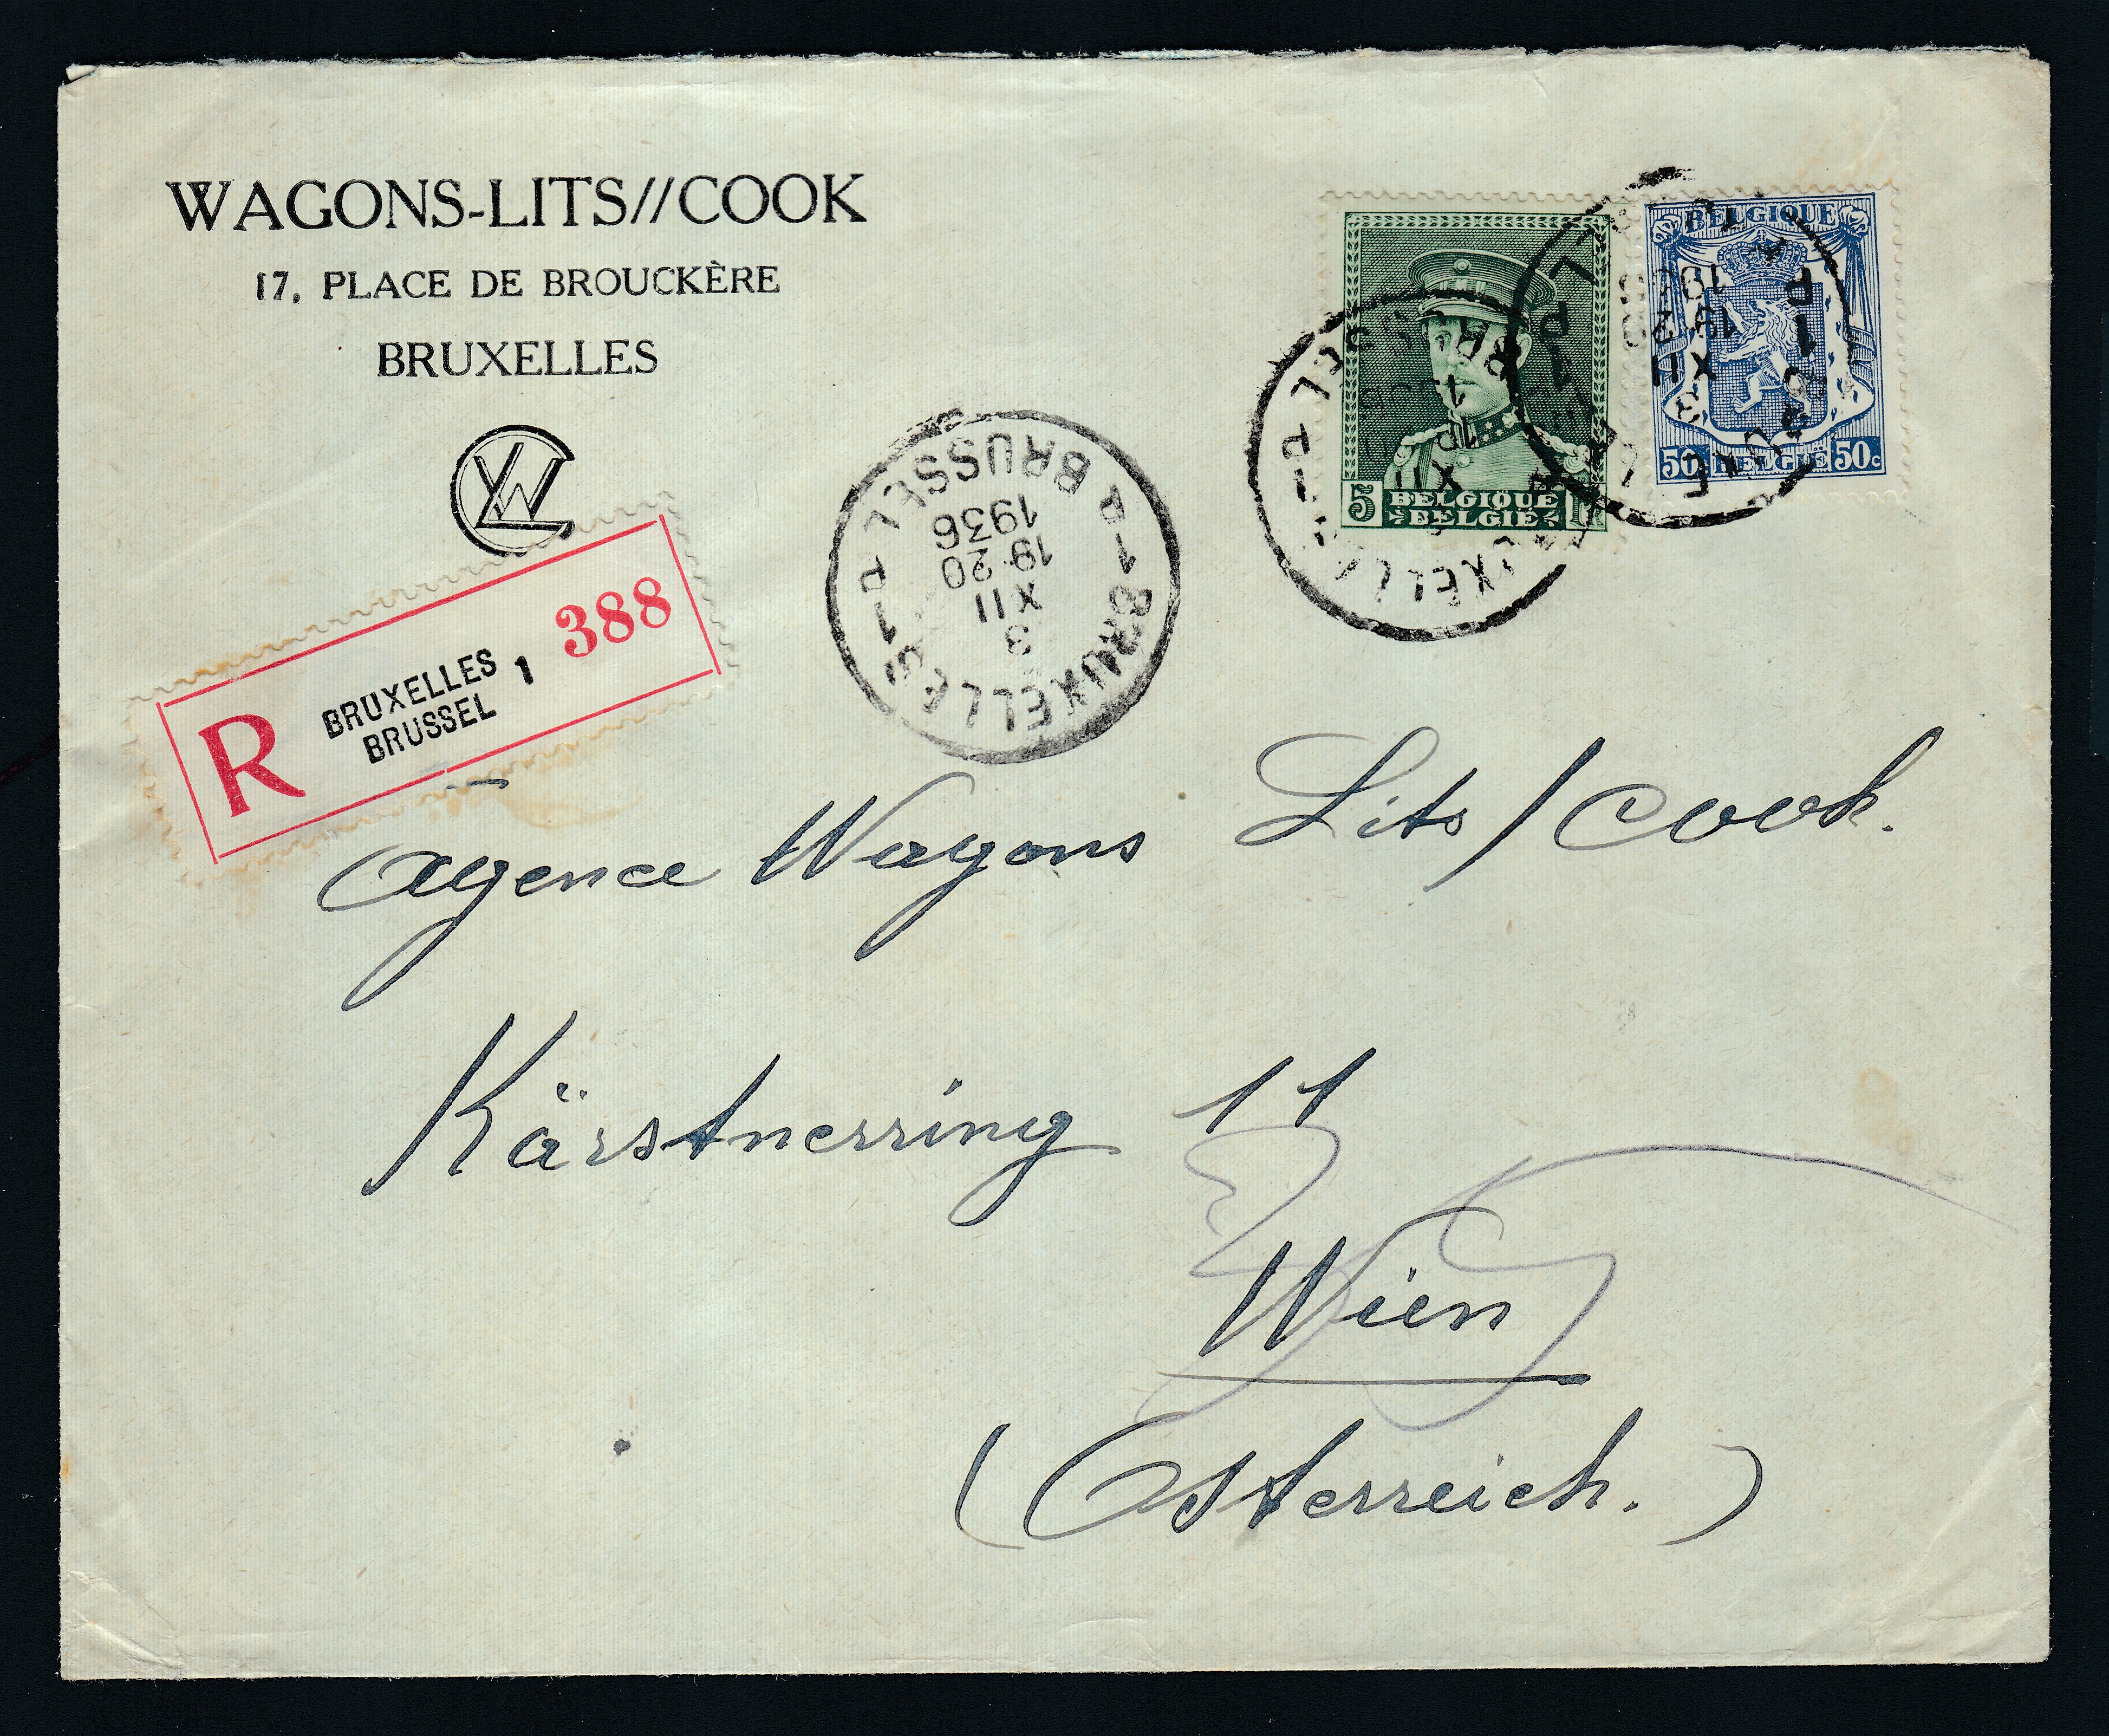 WAGONS-LITS//COOK
17, PLACE DE BROUCKÈRE
BRUXELLES
R BRUXELLES 1 388
BRUSSEL
BRUXELLES 1 BRUSSEL
3
XII
19-20
1936
BELGIQUE
BELGIË
5 Fr
BELGIQUE
50 BELGIË 50c
Agence Wagons Lits/Cook.
Kärstnerring 11
Wien
(Osterreich.)